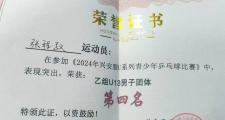 荣誉证书
运动员：
在参加《2024年兴安盟系列青少年乒乓球比赛》中，
表现突出，荣获：
乙组U13男子团体
第四名
特颁此证，以资鼓励！